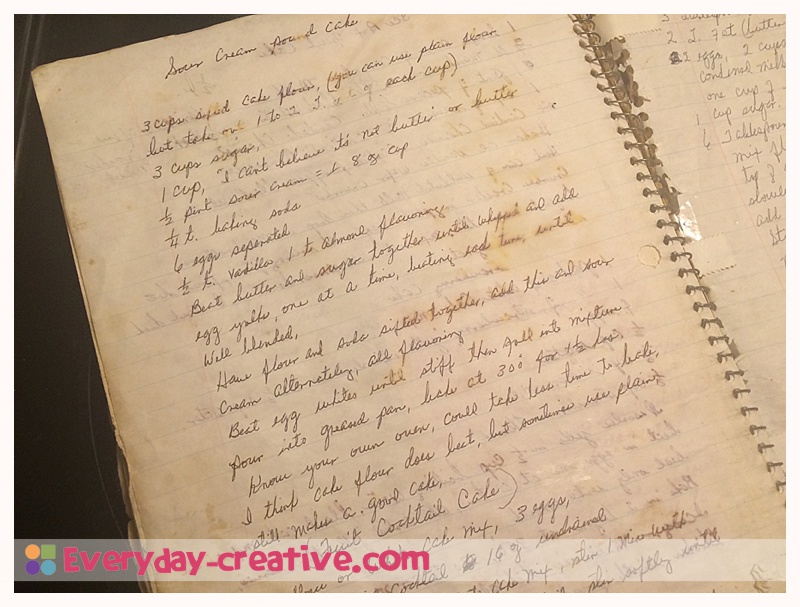 Sour Cream Pound Cake
3 cups sifted cake flour, (you can use plain flour
but take out 1 to 2 T. of each cup)
3 cups sugar,
1 cup, "I can't believe it's not butter" or butter
½ pint sour cream = 1, 8 oz cup
¼ t. baking soda
6 eggs seperated
½ t. vanilla 1 t almond flavoring
Beat butter and sugar together until whipped and add
egg yolks, one at a time, beating each time, until
Well blended,
Have flour and soda sifted together, add this and sour
Cream alternately, add flavoring
Beat egg whites until stiff then fold into mixture
Pour into greased pan, bake at 300 for 1½ hrs,
Know your own oven, could take less time to bake,
I think cake flour does best, but sometimes use plain,
still makes a good cake,
Fruit Cocktail Cake)
cake mix, 3 eggs,
Cocktail 16 oz undrained
cake mix, stir 1 min
until
2 T. Fat (butter
2 eggs, 2 cups
one cup
1 cup sugar
6 Tablespoons
mix
top of
add
Everyday-creative.com